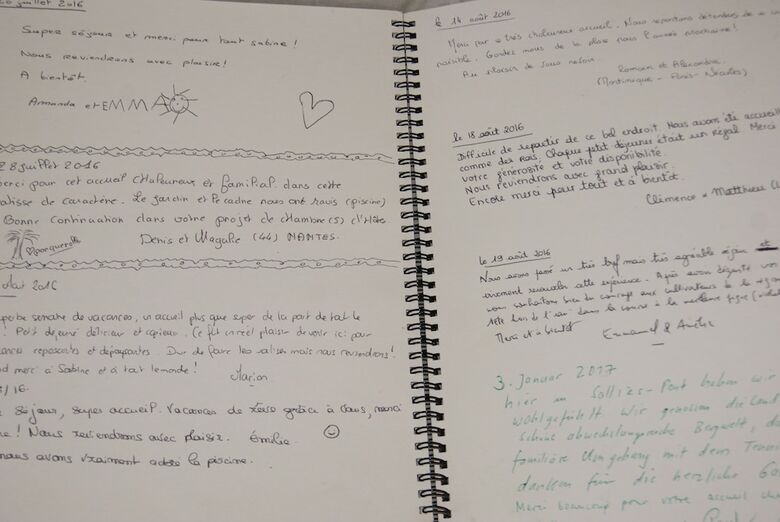 juillet 2016
Super séjour et merci pour tout Sabine !
Nous reviendrons avec plaisir !
A bientôt.
Amanda et EMMA
28 juillet 2016
erci pour cet accueil chaleureux et familial dans cette
de caractère. Le jardin et nous ont ravis (piscine)
Bonne continuation dans votre projet de chambre(s) d'Hôte
porquerolles
Denis et Magalie (44) NANTES.
2016
semaine de vacances, un accueil plus que super de la part de tout le
! Petit dejeuné délicieux et copieux. Ce fut un réel plaisir de venir ici pour
reposantes et dépaysantes. Dur de faire les valises mais nous reviendrons !
merci à Sabine et à tout le monde !
Marion
/16.
séjour, super accueil. Vacances de rêve grâce à vous, merci
! Nous reviendrons avec plaisir. Émilie
nous avons vraiment adoré la piscine.
le 14 août 2016
Merci pour ce très chaleureux accueil. Nous repartons détendus de
paisible. Gardez nous de la place pour l'année prochaine !
Au plaisir de vous revoir.
Romain et Alexandra
(Martinique - Paris - )
le 18 août 2016
Difficile de repartir de ce bel endroit. Nous avons été accueill
comme des rois. Chaque petit déjeuner était un régal. Merci
votre générosité et votre disponibilité.
Nous reviendrons avec grand plaisir.
Encore merci pour tout et à bientôt.
Clémence & Matthieu
le 19 août 2016
Nous avons passé un très bref mais très agréable séjour et
cette expérience. Après avoir dégusté
vous souhaitons bien du courage aux cultivateurs de la
dans la course à la meilleure figue
Merci et à bientôt
Emmanuel &
3. Januar 2017
hier in Solliès-Pont haben wir
wohlgefühlt. Wir genossen die Land
schöne abwechslungsreiche Bergwelt, d
familiäre Umgebung mit dem
danken für die herzliche Ga
Merci beaucoup pour votre accueil